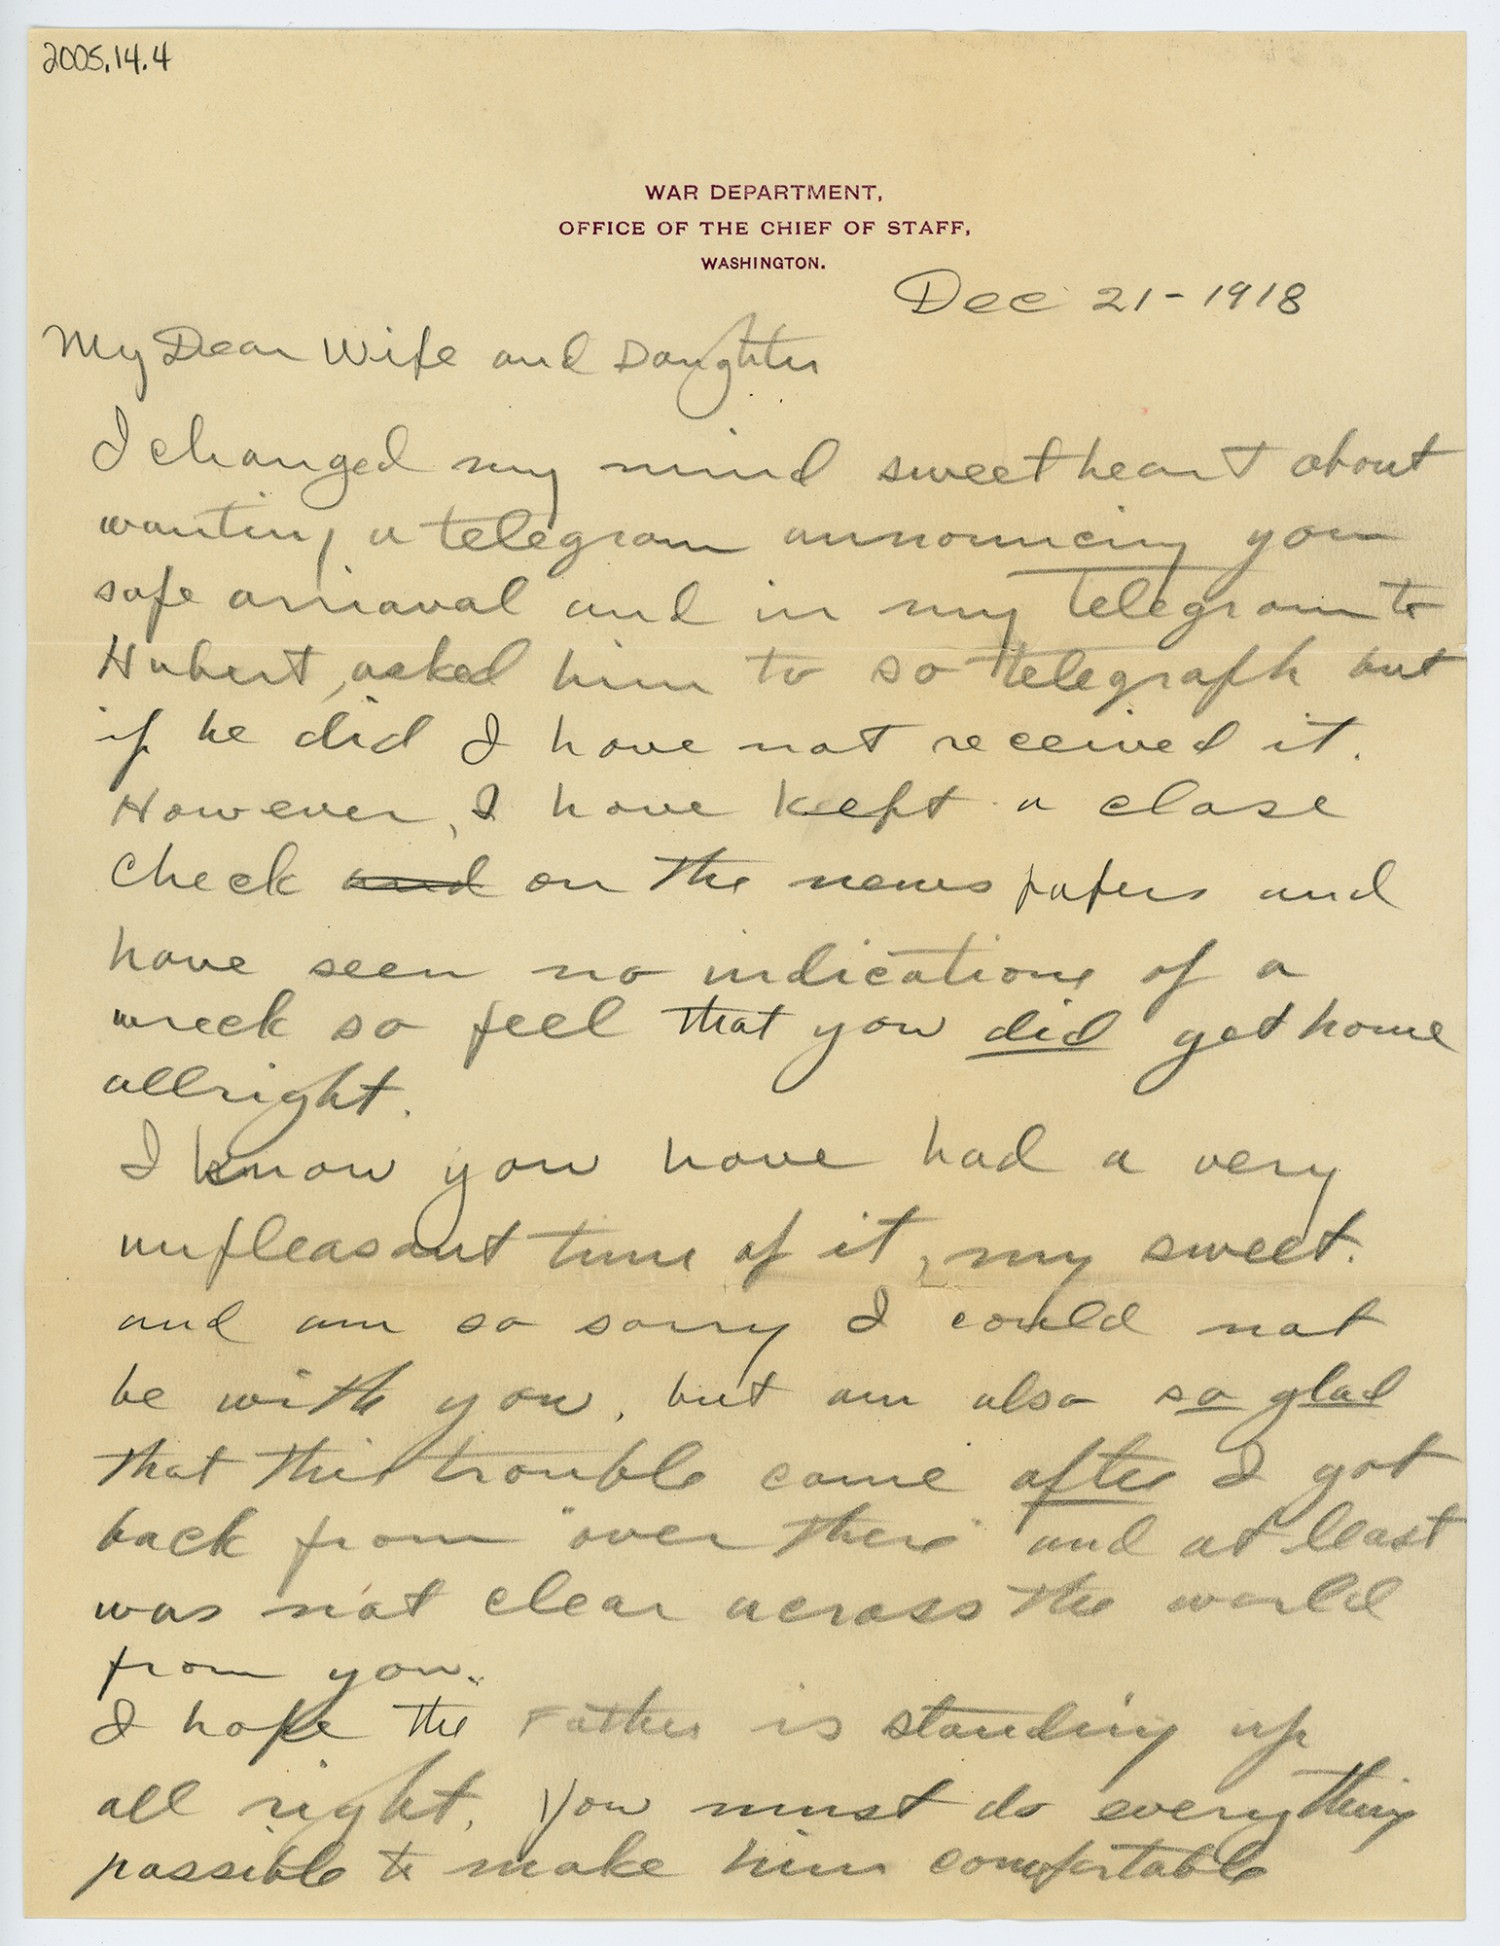 2005.14.4
WAR DEPARTMENT,
OFFICE OF THE CHIEF OF STAFF,
WASHINGTON.
Dec 21-1918
My Dear Wife and Daughter
I changed my mind sweetheart about
wanting a telegram announcing your
safe arriaval and in my telegram to
Hubert, asked him to so telegraph but
if he did I have not received it.
However, I have kept a close
check and on the news papers and
have seen no indications of a
wreck so feel that you did get home
allright.
I know you have had a very
unpleasant time of it, my sweet.
and am so sorry I could not
be with you, but am also so glad
that this trouble came after I got
back from "over there" and at least
was not clear across the world
from you.
I hope the Father is standing up
all right. You must do everything
possible to make him comfortable